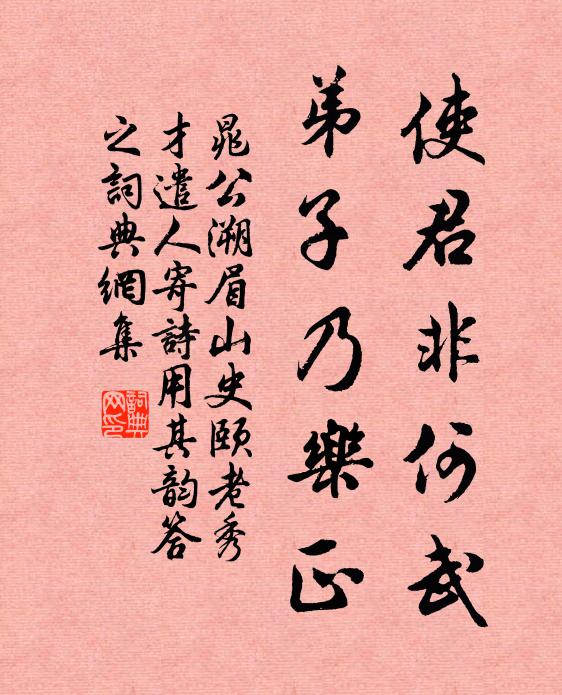 使君非何武
弟子乃樂正
晁公溯眉山史頤老秀
才遣人寄詩用其韵答
之詞典網集
詞典
网印